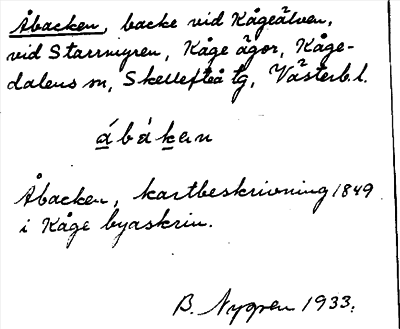 Åbacken, backe vid Kågeälven,
vid Starrmyren, Kåge ägor, Kåge-
dalens sn, Skellefteå tg, Västerb.l.
á̲bá̀k̲en
Åbacken, kartbeskrivning 1849
i Kåge byaskrin.
B. Nygren 1933.